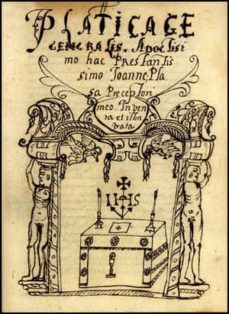 PLATICAGE
GENERALIS. A doctisi
mo hac Prestantis
simo Ioanne Pla
sa Preceptori
meo. Inven
ta et illu
trata
IHS